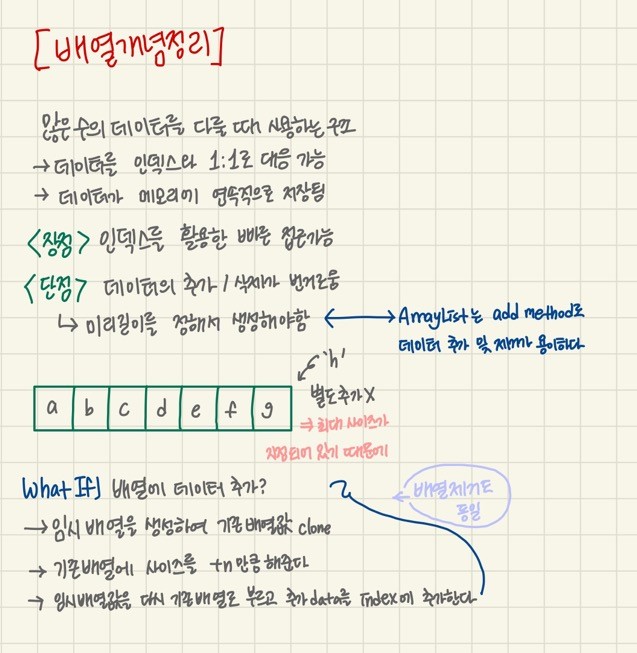 [배열개념정리]
많은 수의 데이터를 다룰 때 사용하는 구조
→ 데이터를 인덱스와 1:1로 대응 가능
→ 데이터가 메모리에 연속적으로 저장됨
<장점> 인덱스를 활용한 빠른 접근가능
<단점> 데이터의 추가 / 삭제가 번거로움
↳ 미리길이를 정해서 생성해야함 ↔ ArrayList는 add method로
데이터 추가 및 제거가 용이하다
'h'
별도추가 X
a b c d e f g
⇒ 최대 사이즈가
지정되어 있기 때문에
What If] 배열에 데이터 추가?
배열제거도
동일
→ 임시 배열을 생성하여 기존 배열값 clone
→ 기존배열에 사이즈를 +n 만큼 해준다
→ 임시배열값을 다시 기존 배열로 부르고 추가 data를 Index에 추가한다